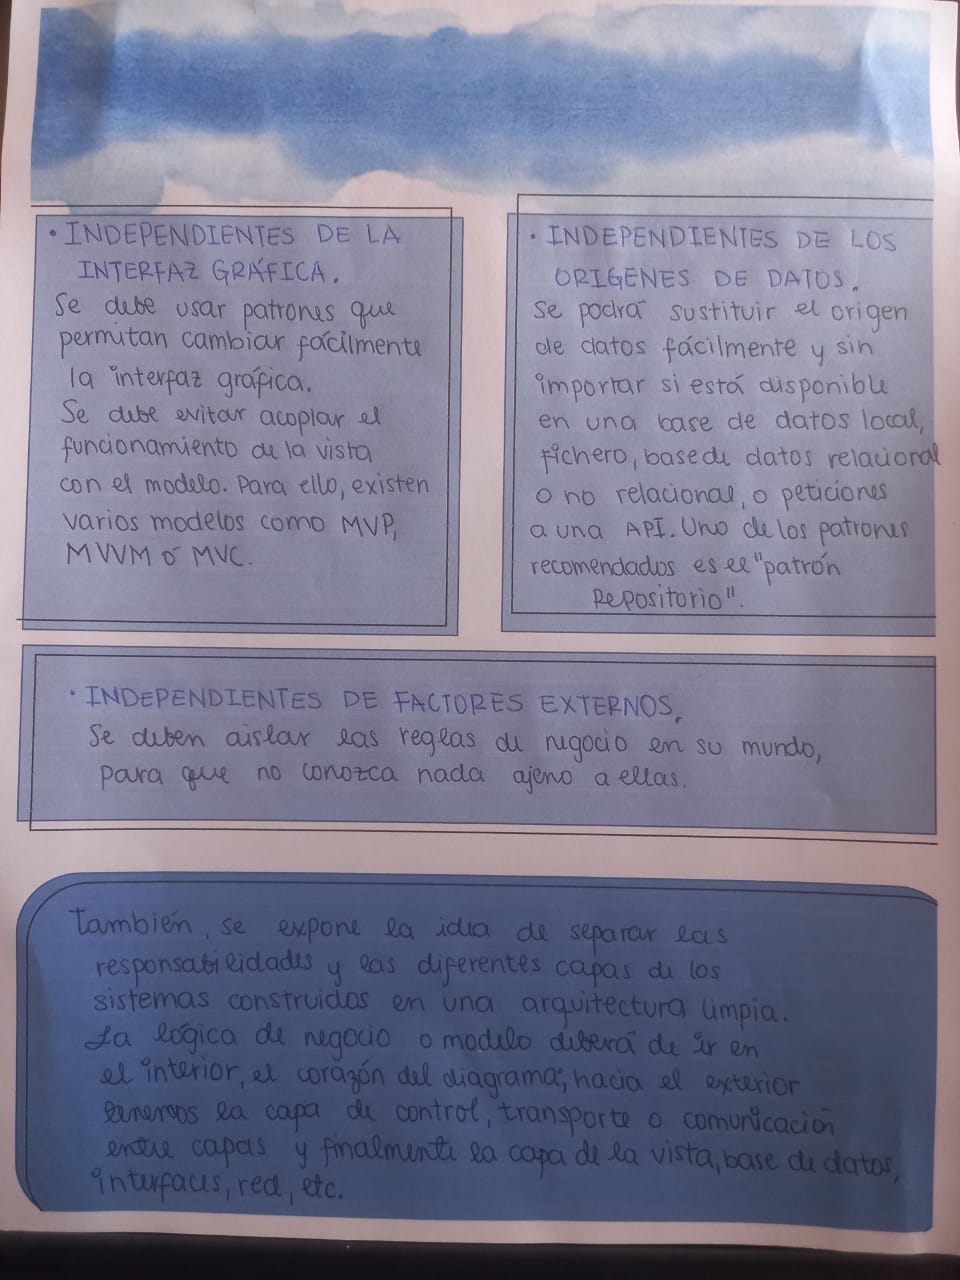 · INDEPENDIENTES DE LA
INTERFAZ GRÁFICA.
Se debe usar patrones que
permitan cambiar fácilmente
la interfaz gráfica.
Se debe evitar acoplar el
funcionamiento de la vista
con el modelo. Para ello, existen
varios modelos como MVP,
MVVM ó MVC.
· INDEPENDIENTES DE LOS
ORIGENES DE DATOS.
Se podrá sustituir el origen
de datos fácilmente y sin
importar si está disponible
en una base de datos local,
fichero, base de datos relacional
o no relacional, o peticiones
a una API. Uno de los patrones
recomendados es el "patrón
Repositorio".
· INDEPENDIENTES DE FACTORES EXTERNOS.
Se deben aislar las reglas de negocio en su mundo,
para que no conozca nada ajeno a ellas.
también, se expone la idea de separar las
responsabilidades y las diferentes capas de los
sistemas construidos en una arquitectura limpia.
La lógica de negocio o modelo deberá de ir en
el interior, el corazón del diagrama; hacia el exterior
tenemos la capa de control, transporte o comunicación
entre capas y finalmente la capa de la vista, base de datos,
interfaces, red, etc.